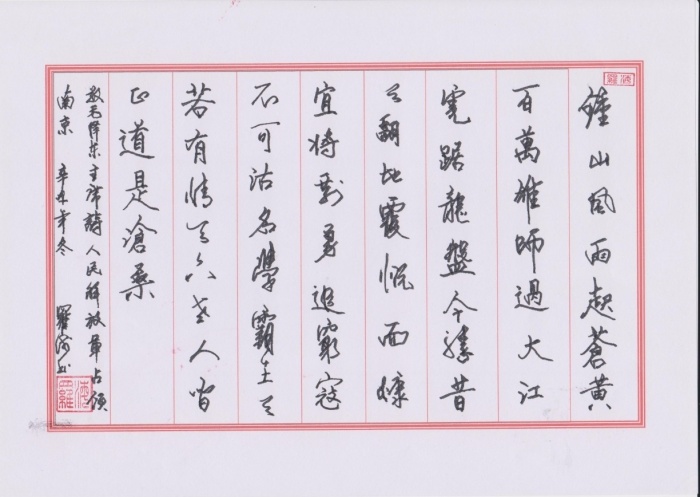 鐘山风雨起蒼黄
百萬雄師過大江
虎踞龍盤今勝昔
天翻地覆慨而慷
宜将剩勇追窮寇
不可沽名學霸王天
若有情天亦老人間
正道是滄桑
毛澤东主席詩人民解放軍占領
南京 辛丑年冬 羅